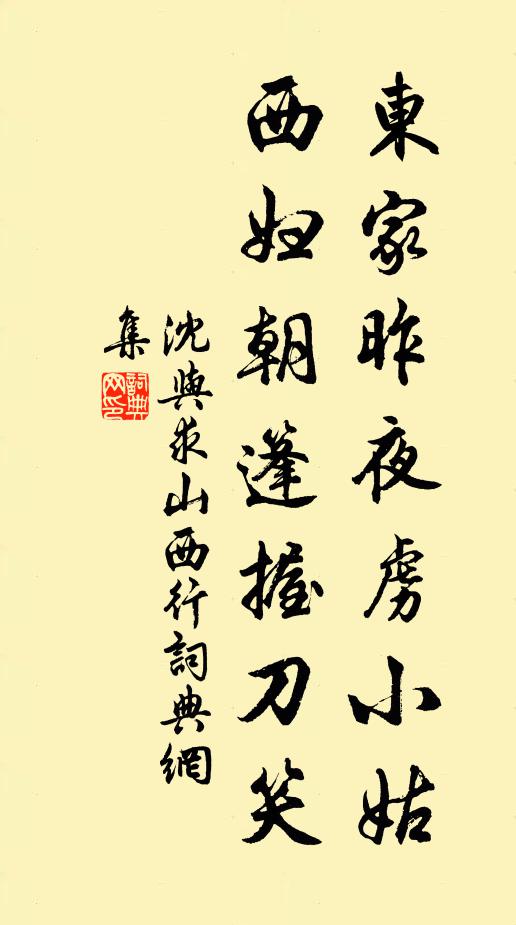 東家昨夜虜小姑
西妇朝篷握刀笑
沈與求山西行詞典網
集
詞典
网印